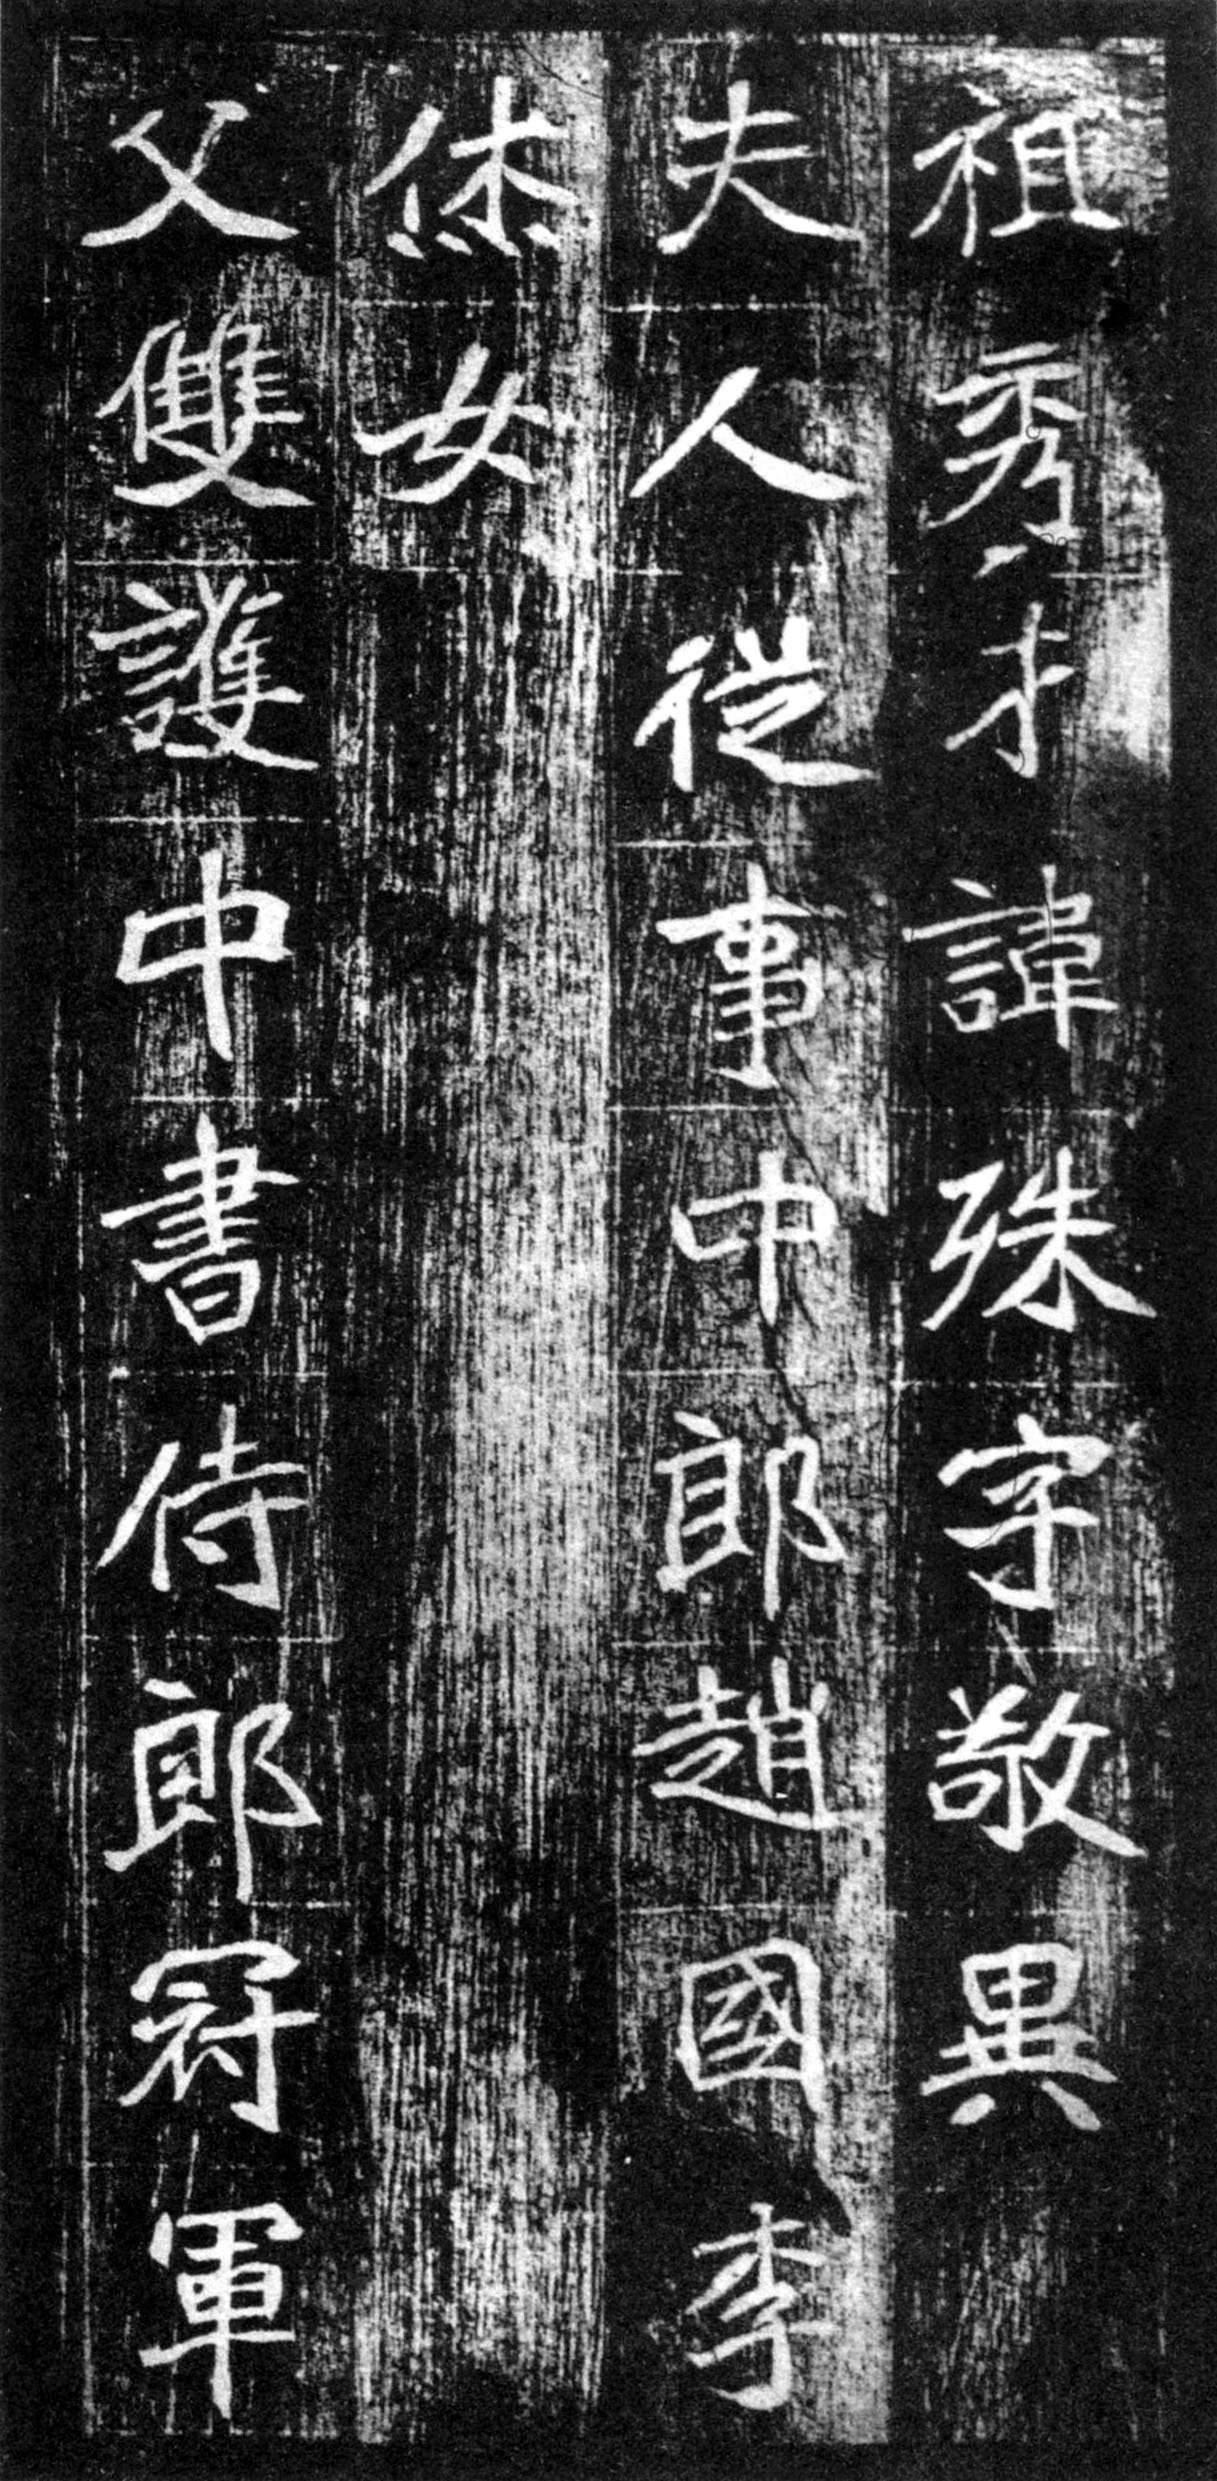 祖秀才諱殊字敬異
夫人從事中郎趙國李
烋女
父雙護中書侍郎冠軍